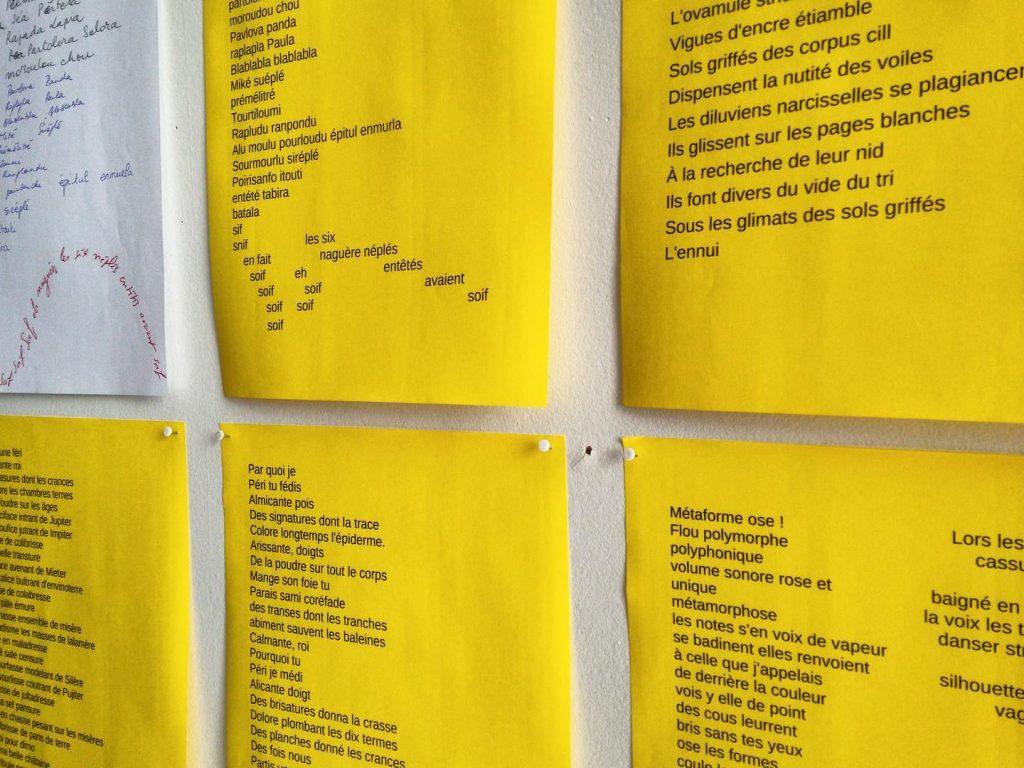 Sea Portera
Rapada Lapra
Partolora Solora
moroudou chou
Pavlova Panda
Raplapla Paula
Blablabla blablabla
Suéplé
épitul enmurla
siréplé
naguère les six néplés entêtés avaient soif
moroudou chou
Pavlova panda
raplapla Paula
Blablabla blablabla
Miké suéplé
prémélitré
Tourtiloumi
Rapludu ranpondu
Alu moulu pourloudu épitul enmurla
Sourmourlu siréplé
Poirisanfo itouti
entété tabira
batala
sif
snif
les six
en fait
naguère néplés
soif
eh
entêtés
soif
soif
avaient
soif
soif
soif
soif
L'ovamule
Vigues d'encre étiamble
Sols griffés des corpus cill
Dispensent la nutité des voiles
Les diluviens narcisselles se plagiancen
Ils glissent sur les pages blanches
À la recherche de leur nid
Ils font divers du vide du tri
Sous les glimats des sols griffés
L'ennui
une féri
ante roi
asures dont les crances
ore les chambres ternes
foudre sur les âges
ciface intrant de Jupiter
oufice jutrant de Impiter
e de colibrisse
belle transture
ce avenant de Mieter
calice bultrant d'envinoterre
se de colabresse
pâle émure
hasse ensemble de misère
udisme les masses de lalamère
e en maladresse
é sale censure
ourlasse modelant de Silère
sourlisse coutrant de Pujiter
sse de jultadresse
a sel pansure
en chasse pesant sur les misères
obrisse de paris de terre
oi pour dimo
ma belle châtaine
Par quoi je
Péri tu fédis
Almicante pois
Des signatures dont la trace
Colore longtemps l'épiderme.
Arissante, doigts
De la poudre sur tout le corps
Mange son foie tu
Parais sami coréfade
des transes dont les tranches
abiment sauvent les baleines
Calmante, roi
Pourquoi tu
Péri je médi
Alicante doigt
Des brisatures donna la crasse
Dolore plombant les dix termes
Des planches donné les crances
Des fois nous
Métaforme ose !
Flou polymorphe
polyphonique
volume sonore rose et
unique
métamorphose
les notes s'en voix de vapeur
se badinent elles renvoient
à celle que j'appelais
de derrière la couleur
vois y elle de point
des cous leurrent
bris sans tes yeux
ose les formes
Lors les
cassu
baigné en
la voix les t
danser str
silhouette
vag